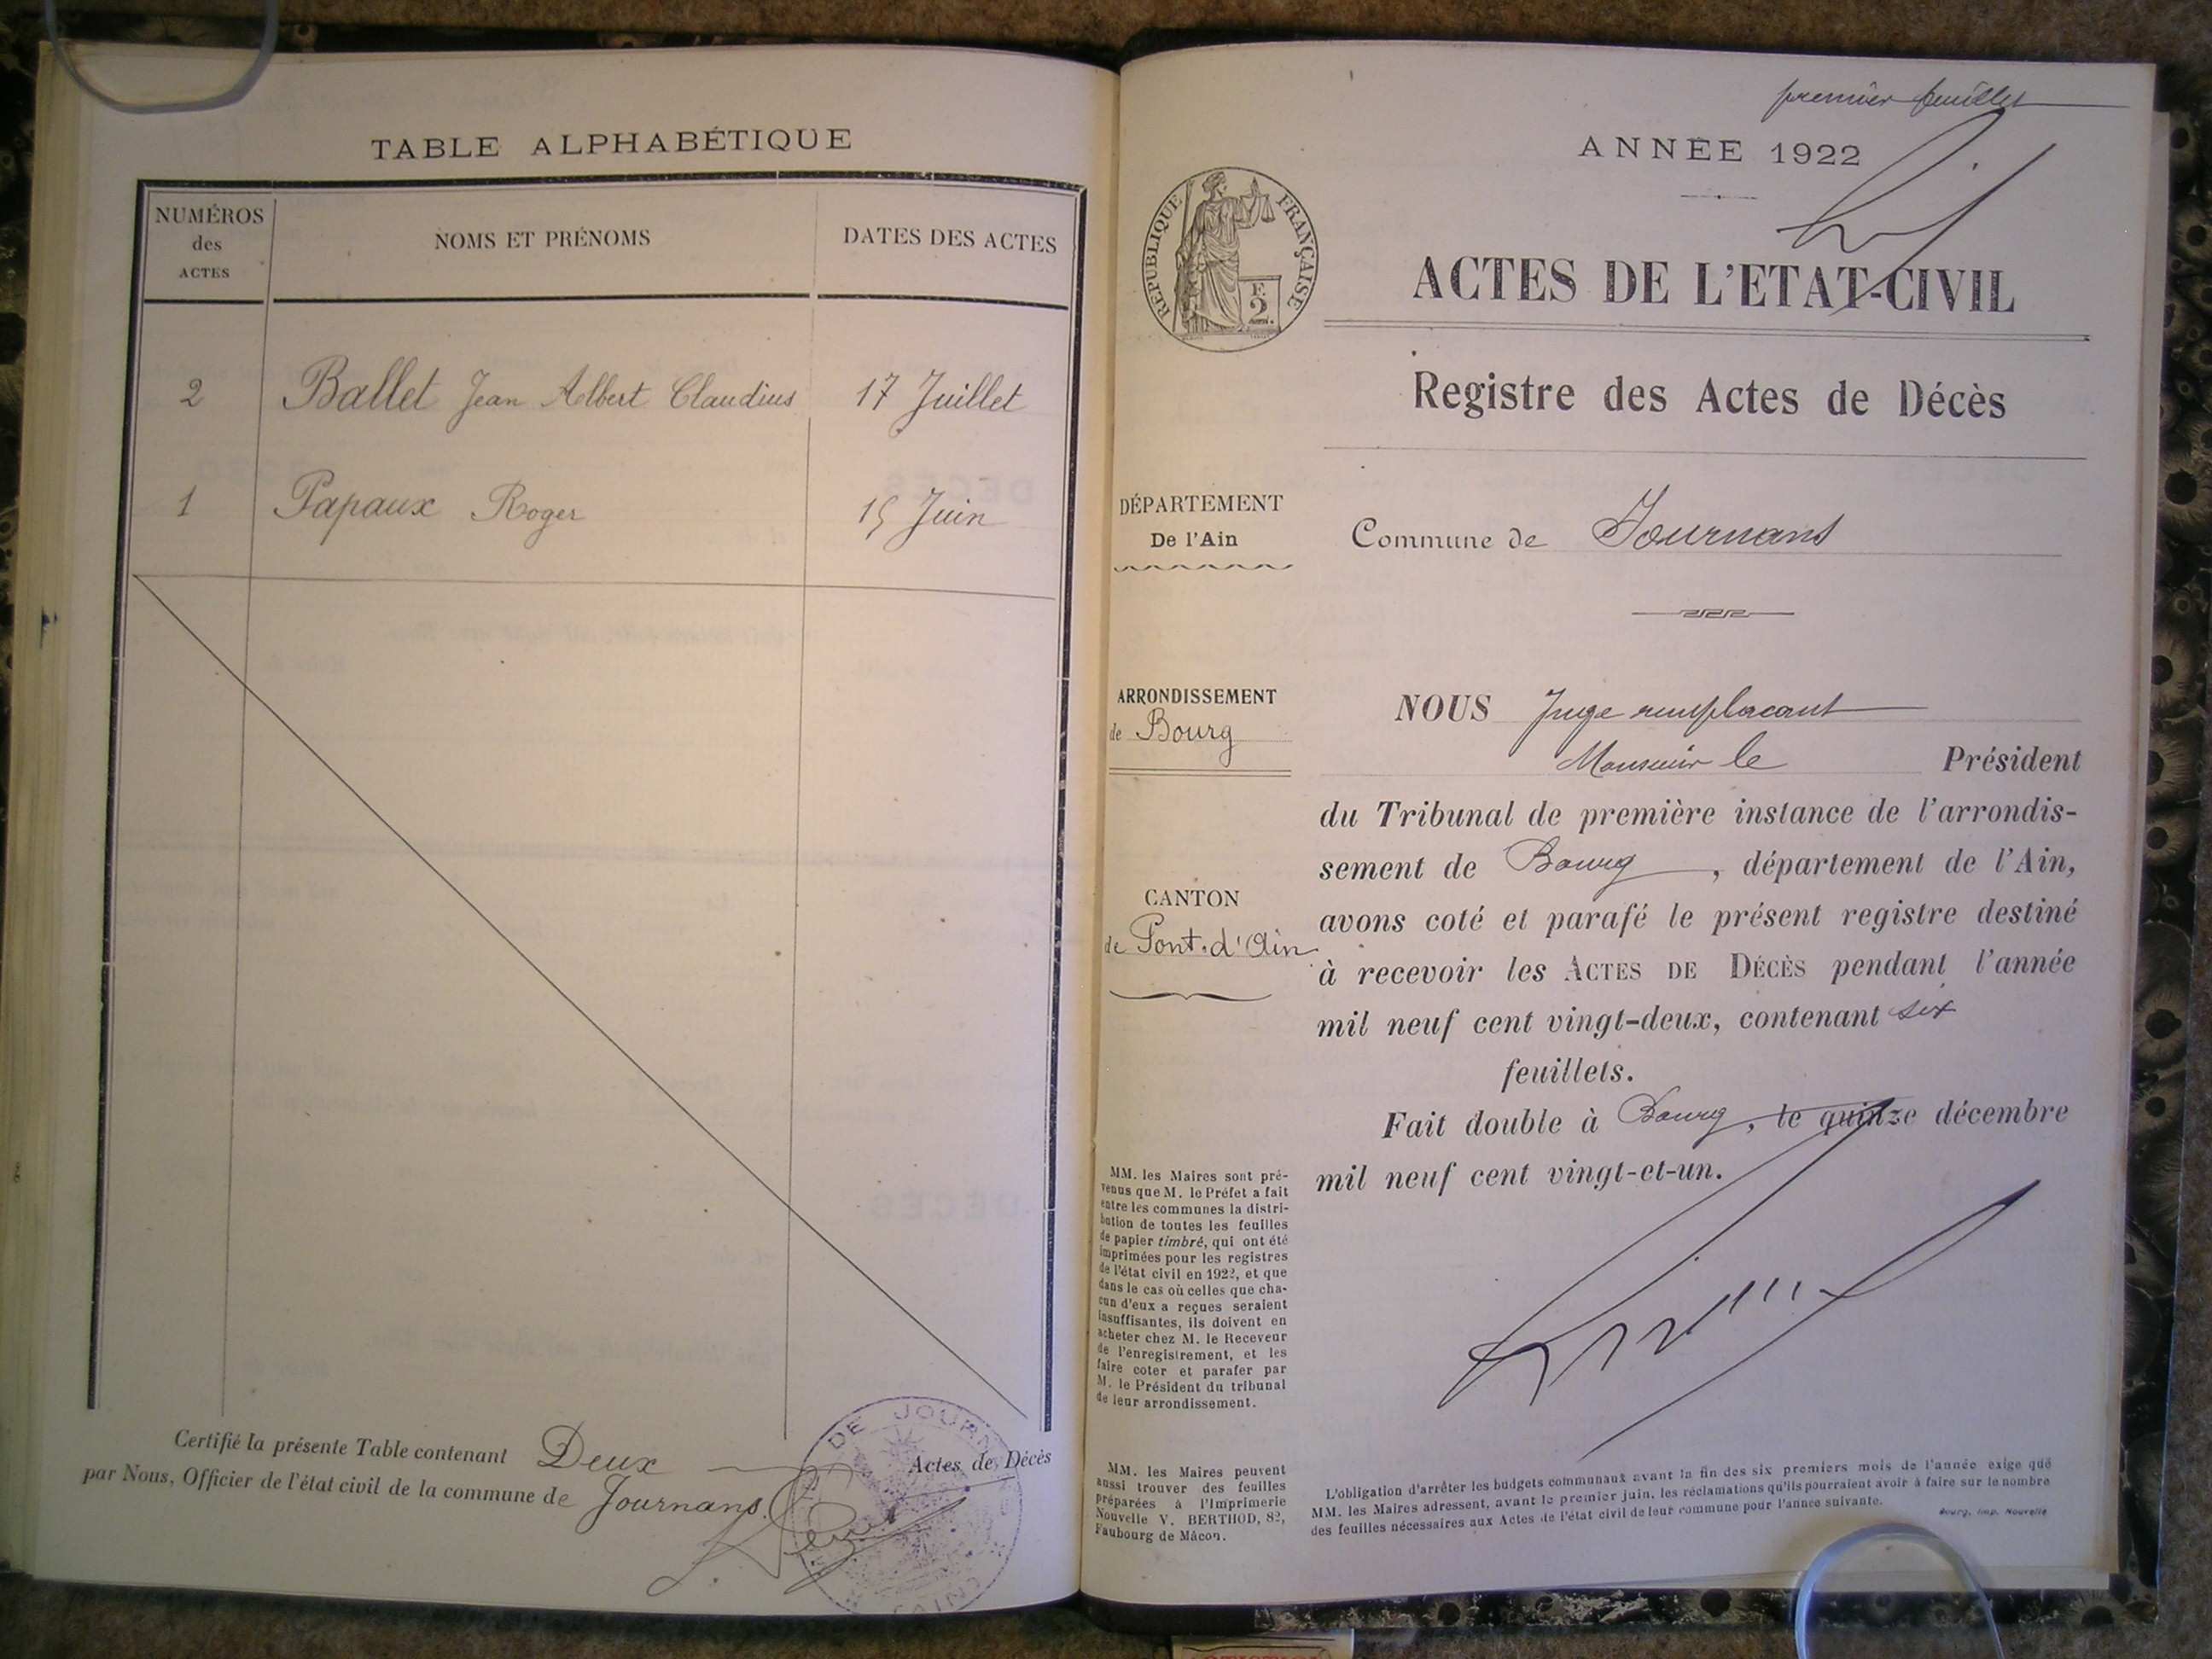 TABLE ALPHABÉTIQUE
NUMÉROS
des
ACTES
NOMS ET PRÉNOMS
DATES DES ACTES
2 Ballet Jean Albert Claudius 17 Juillet
1 Papaux Roger 15 Juin
Certifié la présente Table contenant Deux Actes de Décès
par Nous, Officier de l'état civil de la commune de Journans.
DE JOURNANS
premier feuillet
ANNÉE 1922
RÉPUBLIQUE FRANÇAISE
2
ACTES DE L'ETAT-CIVIL
Registre des Actes de Décès
DÉPARTEMENT
De l'Ain
Commune de Journans
ARRONDISSEMENT
de Bourg
CANTON
de Pont-d'Ain
NOUS Juge remplacant
Monsieur le Président
du Tribunal de première instance de l'arrondis-
sement de Bourg, département de l'Ain,
avons coté et parafé le présent registre destiné
à recevoir les ACTES DE DÉCÈS pendant l'année
mil neuf cent vingt-deux, contenant six
feuillets.
Fait double à Bourg, le quinze décembre
mil neuf cent vingt-et-un.
MM. les Maires sont pré-
venus que M. le Préfet a fait
entre les communes la distri-
bution de toutes les feuilles
de papier timbré, qui ont été
imprimées pour les registres
de l'état civil en 1922, et que
dans le cas où celles que cha-
cun d'eux a reçues seraient
insuffisantes, ils doivent en
acheter chez M. le Receveur
de l'enregistrement, et les
faire coter et parafer par
M. le Président du tribunal
de leur arrondissement.
MM. les Maires peuvent
aussi trouver des feuilles
préparées à l'Imprimerie
Nouvelle V. BERTHOD, 82,
Faubourg de Mâcon.
L'obligation d'arrêter les budgets communaux avant la fin des six premiers mois de l'année exige que
MM. les Maires adressent, avant le premier juin, les réclamations qu'ils pourraient avoir à faire sur le nombre
des feuilles nécessaires aux Actes de l'état civil de leur commune pour l'année suivante.
Bourg, imp. Nouvelle